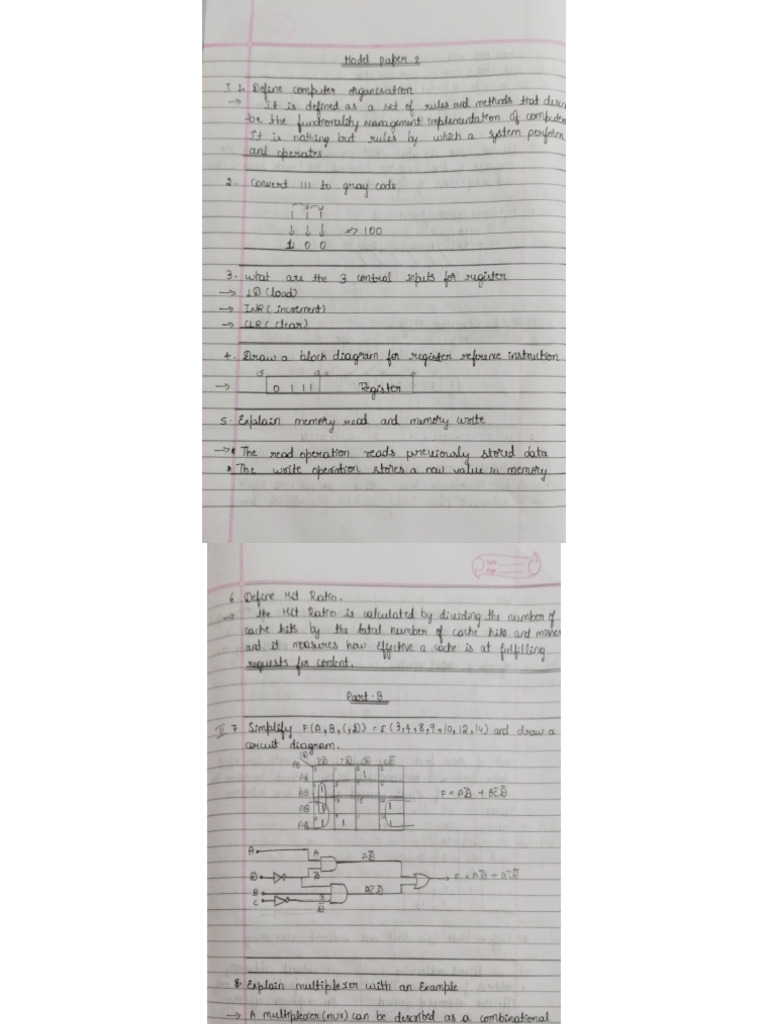 Model paper 2
I 1. Define computer organisation
→ It is defined as a set of rules and methods that descri
be the functionality management implementation of computer
It is nothing but rules by which a system perform
and operates
2. Convert 111 to gray code
1 1 1
↓ ↓ ↓ => 100
1 0 0
3. What are the 3 control inputs for register
→ LD (load)
→ INR ( increment)
→ CLR ( clear)
4. Draw a block diagram for register reference instruction
→ 0 1 1 1 Register
5. Explain memory read and memory write
→ • The read operation reads previously stored data
• The write operation stores a new value in memory
6 Define Hit Ratio.
→ the Hit Ratio is calculated by dividing the number of
cache hits by the total number of cache hits and misses
and it measures how effective a cache is at fulfilling
requests for content.
Part-B
II 7 Simplify F(A,B,C,D) = ε (3,4,8,9,10,12,14) and draw a
circuit diagram.
F = AD̅ + BC̅D̅
A A AD̅
D D̅ F = AD̅ + BC̅D̅
B
C
8. Explain multiplexer with an Example
→ A multiplexer (mux) can be described as a combinational